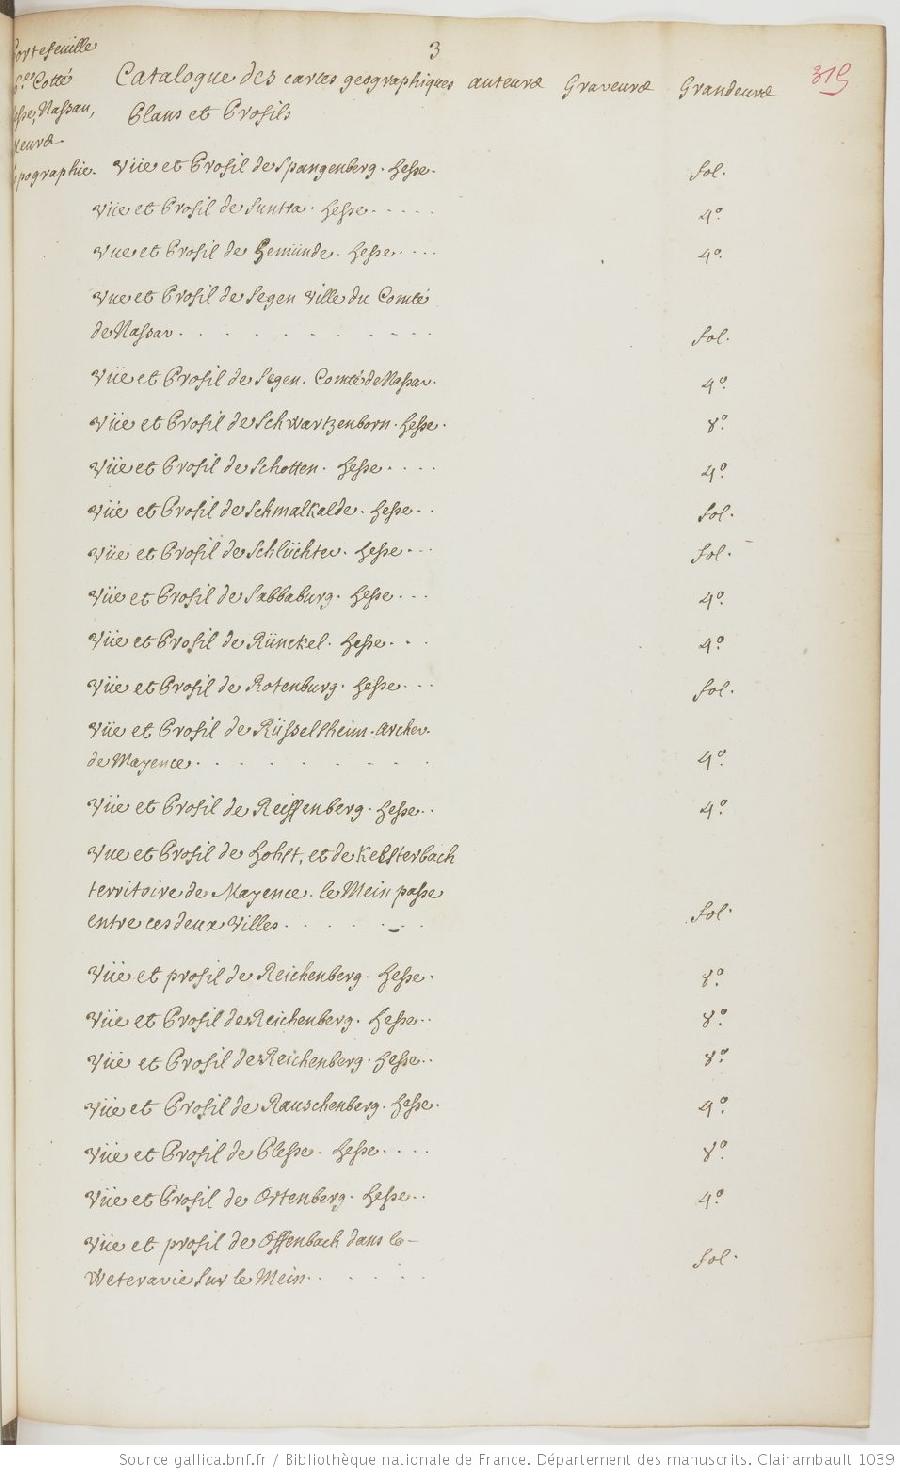 3
319
portefeuille
Cotté
Nassau,
Catalogue des cartes geographiques auteurs Graveurs Grandeurs
Plans et Profils
Vüe et Profil de Spangenberg. Hesse. fol.
Vüe et Profil de Suntra. Hesse..... 4º.
Vue et Profil de Gemünde. Hesse.... 4º.
Vue et Profil de Segen Ville du Comté
de Nassau......... fol.
Vüe et Profil de Segen. Comté de Nassau. 4º.
Vüe et Profil de Schwartzenborn. Hesse. 8º.
Vüe et Profil de Schotten. Hesse.... 4º.
Vüe et Profil de Schmalkalde. Hesse.. fol.
Vüe et Profil de Schlüchter. Hesse... fol.
Vüe et Profil de Sabbaburg. Hesse... 4º.
Vüe et Profil de Rünckel. Hesse... 4º.
Vüe et Profil de Rotenburg. Hesse... fol.
Vüe et Profil de Rüsselsheim. Archev.
de Mayence........ 4º.
Vüe et Profil de Reiffenberg. Hesse.. 4º.
Vue et Profil de Hohst, et de Kelsterbach
territoire de Mayence. le Mein passe
entre ces deux Villes...... fol.
Vüe et profil de Reichenberg. Hesse. 8º.
Vüe et Profil de Reichenberg. Hesse.. 8º.
Vüe et Profil de Reichenberg. Hesse.. 8º.
Vüe et Profil de Rauschenberg. Hesse. 4º.
Vüe et Profil de Plesse. Hesse.... 8º.
Vüe et Profil de Ortenberg. Hesse.. 4º.
Vüe et profil de Offenbach dans la
Weteravie sur le Mein..... fol.
Source gallica.bnf.fr / Bibliothèque nationale de France. Département des manuscrits. Clairambault 1039